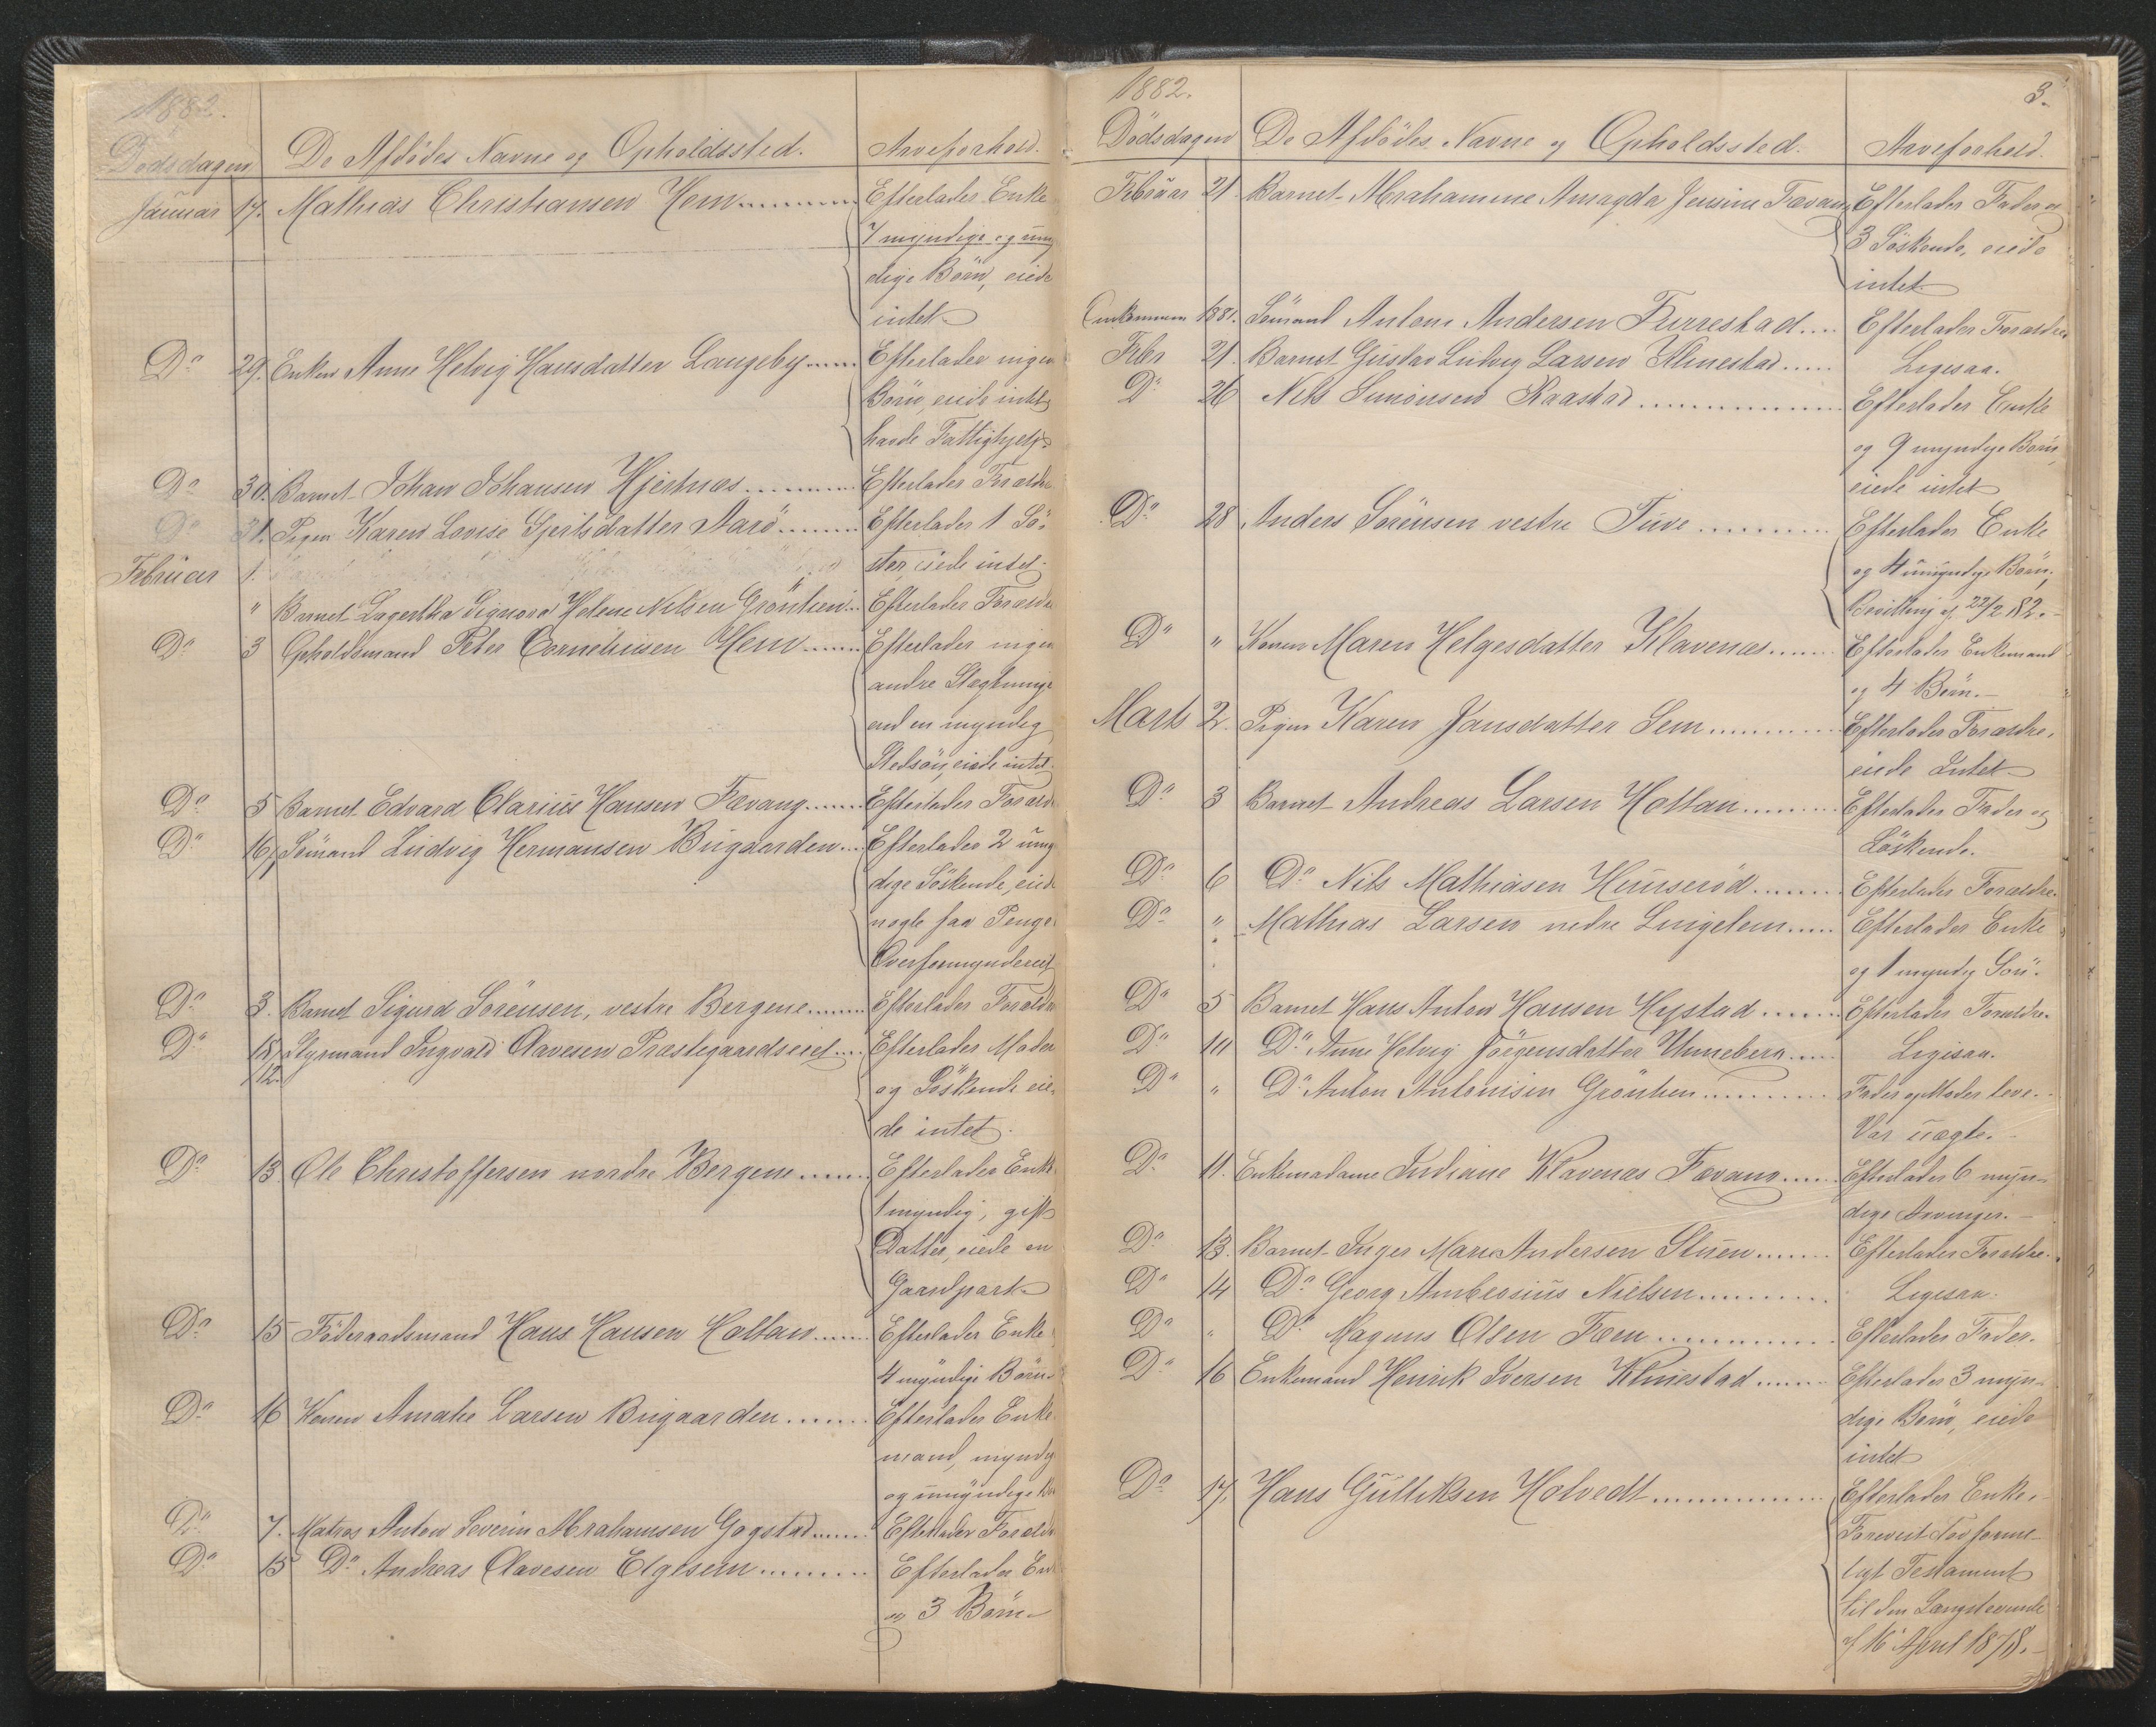 1882.
Dødsdagen De Afdødes Navne og Opholdssted. Arveforhold.
Januar 17. Mathias Christiansen Hem Efterlader Enke
7 myndige og umyn
dige Børn, eiede
intet
Do 29. Enken Anne Helvig Hansdatter Langeby Efterlader ingen
Børn, eiede intet
havde Fattighjelp
Do 30. Barnet Johan Johansen Hjertnæs Efterlader Forældre
Do 31. Pigen Karen Lovise Gjertsdatter Aarø Efterlader 1 Sø-
Februar 1. ster, eiede intet.
" Barnet Lagertha Signora Helene Nilsen Grønlien Efterlader Forældre
Do 3 Opholdsmand Peter Corneliusen Hem Efterlader ingen
andre Slægtninge
end en myndig
Stedsøn, eiede intet
Do 5 Barnet Edvard Clarius Hansen Fevang Efterlader Forældre
Do 16/ Sømand Ludvig Hermansen Bugaarden Efterlader 2 umyn
dige Søskende, eied
nogle faa Penge
Overformynderiet
Do 3. Barnet Sigurd Sørensen, vestre Bergene Efterlader Forældre
Do 18/12 Styrmand Ingvald Olavesen Præstegaardseiet Efterlader Moder
og Søskende eie-
de intet.
Do 13 Ole Christoffersen nordre Bergene Efterlader Enke
1 myndig, gift
Datter, eiede en
Gaardpart
Do 15 Føderaadsmand Hans Hansen Holtan Efterlader Enke
4 myndige Børn
Do 16 Konen Amalie Larsen Bugaarden Efterlader Enke
mand, myndig
og umyndige
Do 7. Matros Anton Severin Abrahamsen Gogstad Efterlader Forældr
Do 15 Do Andreas Olavesen Elgesem Efterlader En
og 3 Børn
1882. 3.
Dødsdagen De Afdødes Navne og Opholdssted. Arveforhold.
Februar 21. Barnet Abrahamine Amagda Jensine Fevang Efterlader Fader og
3 Søskende, eiede
intet
1881. Sømand Anton Andersen Furrestad Efterlader Forældre
Febr 21. Barnet Gustav Ludvig Larsen Klinestad Ligesaa.
Do 26 Nils Simonsen Raastad Efterlader Enke
og 9 myndige Børn,
eiede intet
Do 28 Anders Sørensen vestre Tuve Efterlader Enke
og 4 umyndige Børn,
Bevilling af 22/2 82.
Do " Konen Maren Helgesdatter Klavenæs Efterlader Enkemand
og 4 Børn.
Marts 2. Pigen Karen Jansdatter Sem Efterlader Forældre,
eiede Intet
Do 3 Barnet Andreas Larsen Holtan Efterlader Fader og
Søskende.
Do 6 Do Nils Mathiasen Hunserød Efterlader Forældre.
Do " Mathias Larsen nedre Lingelem Efterlader Enke
og 1 myndig Søn.
Do 5 Barnet Hans Anton Hansen Hystad Efterlader Forældre.
Do 10 Do Anne Helvig Jørgensdatter Unneberg Ligesaa.
Do " Do Anton Antonisen Grønlien Fader og Moder leve.
Var uægte.
Do 11. Enkemadame Indiane Klavenæs Fevang Efterlader 6 myn-
dige Arvinger.
Do 13. Barnet Inger Marie Andersen Stuen Efterlader Forældre.
Do 14 Do Georg Ambrosius Nielsen Ligesaa.
Do " Do Magnus Olsen Fæn Efterlader Fader.
Do 16 Enkemand Henrik Iversen Klinestad Efterlader 3 myn-
dige Børn, eiede
intet
Do 17. Hans Gulliksen Holvedt Efterlader Enke.
Forevist Lovforme-
ligt Testament
til den Længstlevende
af 16 April 1878.